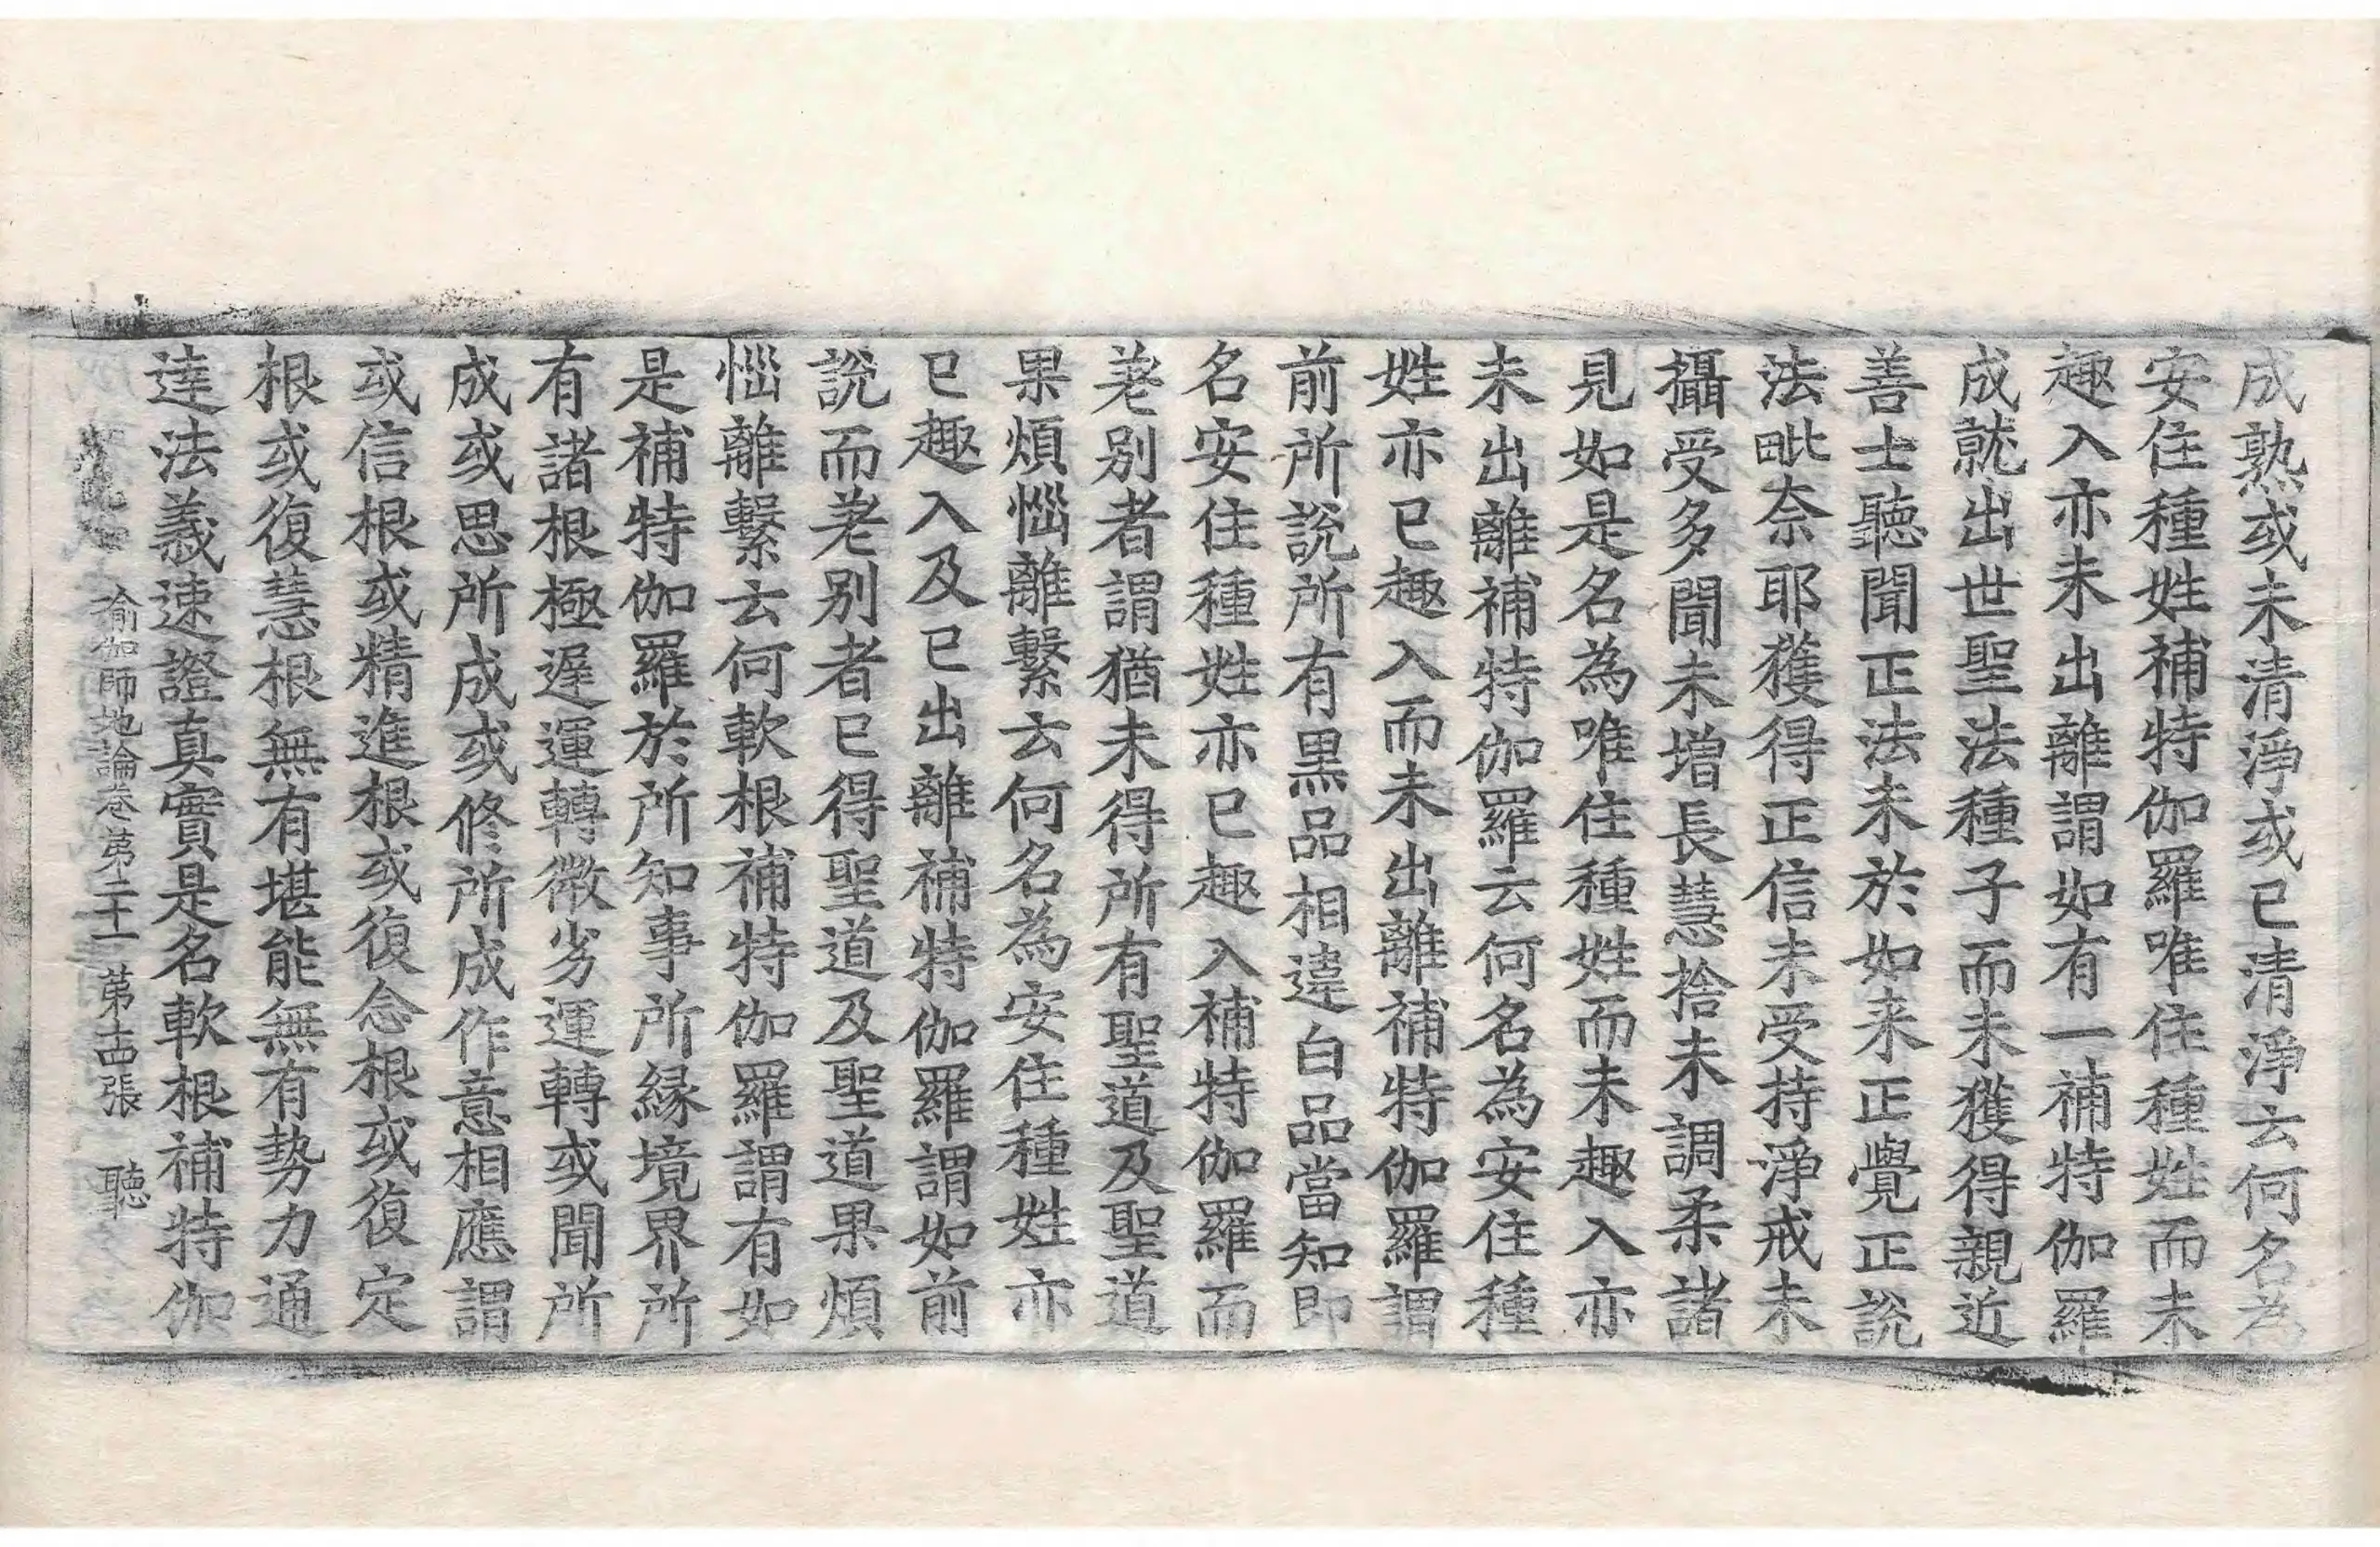 成熟或未清淨或已清淨云何名為
安住種姓補特伽羅唯住種姓而未
趣入亦未出離謂如有一補特伽羅
成就出世聖法種子而未獲得親近
善士聽聞正法未於如来正覺正說
法毗奈耶獲得正信未受持淨戒未
攝受多聞未增長慧捨未調柔諸
見如是名為唯住種姓而未趣入亦
未出離補特伽羅云何名為安住種
姓亦已趣入而未出離補特伽羅謂
前所說所有黒品相違白品當知即
名安住種姓亦已趣入補特伽羅而
差別者謂猶未得所有聖道及聖道
果煩惱離繫云何名為安住種姓亦
已趣入及已出離補特伽羅謂如前
說而差別者已得聖道及聖道果煩
惱離繫云何軟根補特伽羅謂有如
是補特伽羅於所知事所緣境界所
有諸根極遲運轉微劣運轉或聞所
成或思所成或修所成作意相應謂
或信根或精進根或復念根或復定
根或復慧根無有堪能無有勢力通
達法義速證真實是名軟根補特伽
瑜伽師地論卷第二十一　第十四張　聽